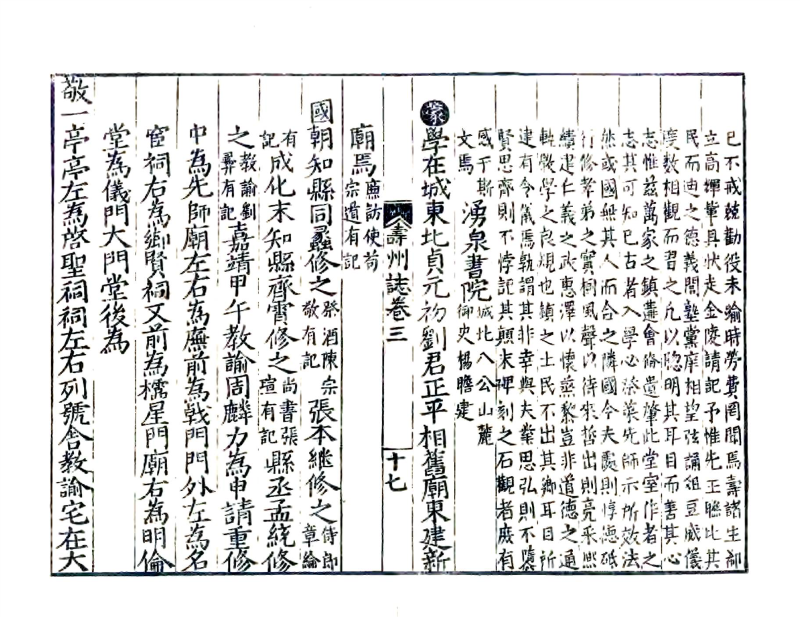 已不戒兢勸役未踰時勞費罔聞焉壽諸生
立高暉輩具狀走金陵請記予惟先王聯比其
民而迪之德義閭塾黨庠相望弦誦俎豆威儀
度數相觀而習之凡以聰明其耳目而善其心
志惟茲萬家之鎮叢會脩遺肇此堂室作者之
志其可知已古者入學必祭菜先師示所效法
然或國無其人而合之隣國今夫處則惇德砥
行修孝弟之實樹風聲以待來哲出則亮采熙
績建仁義之政惠澤以懷烝黎豈非道德之通
軌儆學之良規也鎮之士民不出其鄉耳目所
建有令儀焉孰謂其非幸與夫業思弘則不隳
賢思齊則不悖記其顛末碑刻之石觀者庶有
感于斯文焉
湧泉書院 城北八公山麓御史楊瞻建
蒙學在城東北貞元初劉君正平相舊廟東建新
廟焉 廉訪使苟宗道有記
壽州誌卷三
十七
國朝知縣同彝修之 祭酒陳敬宗有記 張本繼修之 侍郎章綸有記
成化末知縣齊霄修之 尚書張瑄有記 縣丞孟統修
之 教諭劉彝有記 嘉靖甲午教諭周麟力為申請重修
中為先師廟左右為廡前為戟門門外左為名
宦祠右為鄉賢祠又前為櫺星門廟右為明倫
堂為儀門大門堂後為
敬一亭亭左為啓聖祠祠左右列號舍教諭宅在大